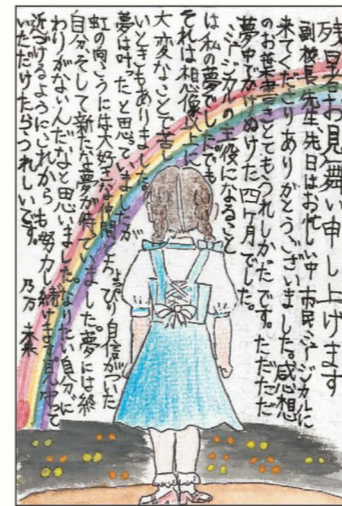 残暑お見舞い申し上げます
副校長先生、先日はお忙しい中市民ミュージカルに
来てくださりありがとうございました。感想
のお葉書とてもうれしかったです。ただただ
夢中でかけぬけた四ヶ月でした。
ミュージカルの主役になること
は私の夢でした。でも
それは想像以上に
大変なことで苦し
いときもありました。
夢は叶ったと思っていましたが
虹の向こうには大好きな仲間とちょっぴり自信がついた
自分、そして新たな夢が待っていました。夢には終
わりがないんだなと思いました。なりたい自分に
近づけるようにこれからも努力し続けます。見守って
いただけたらうれしいです。